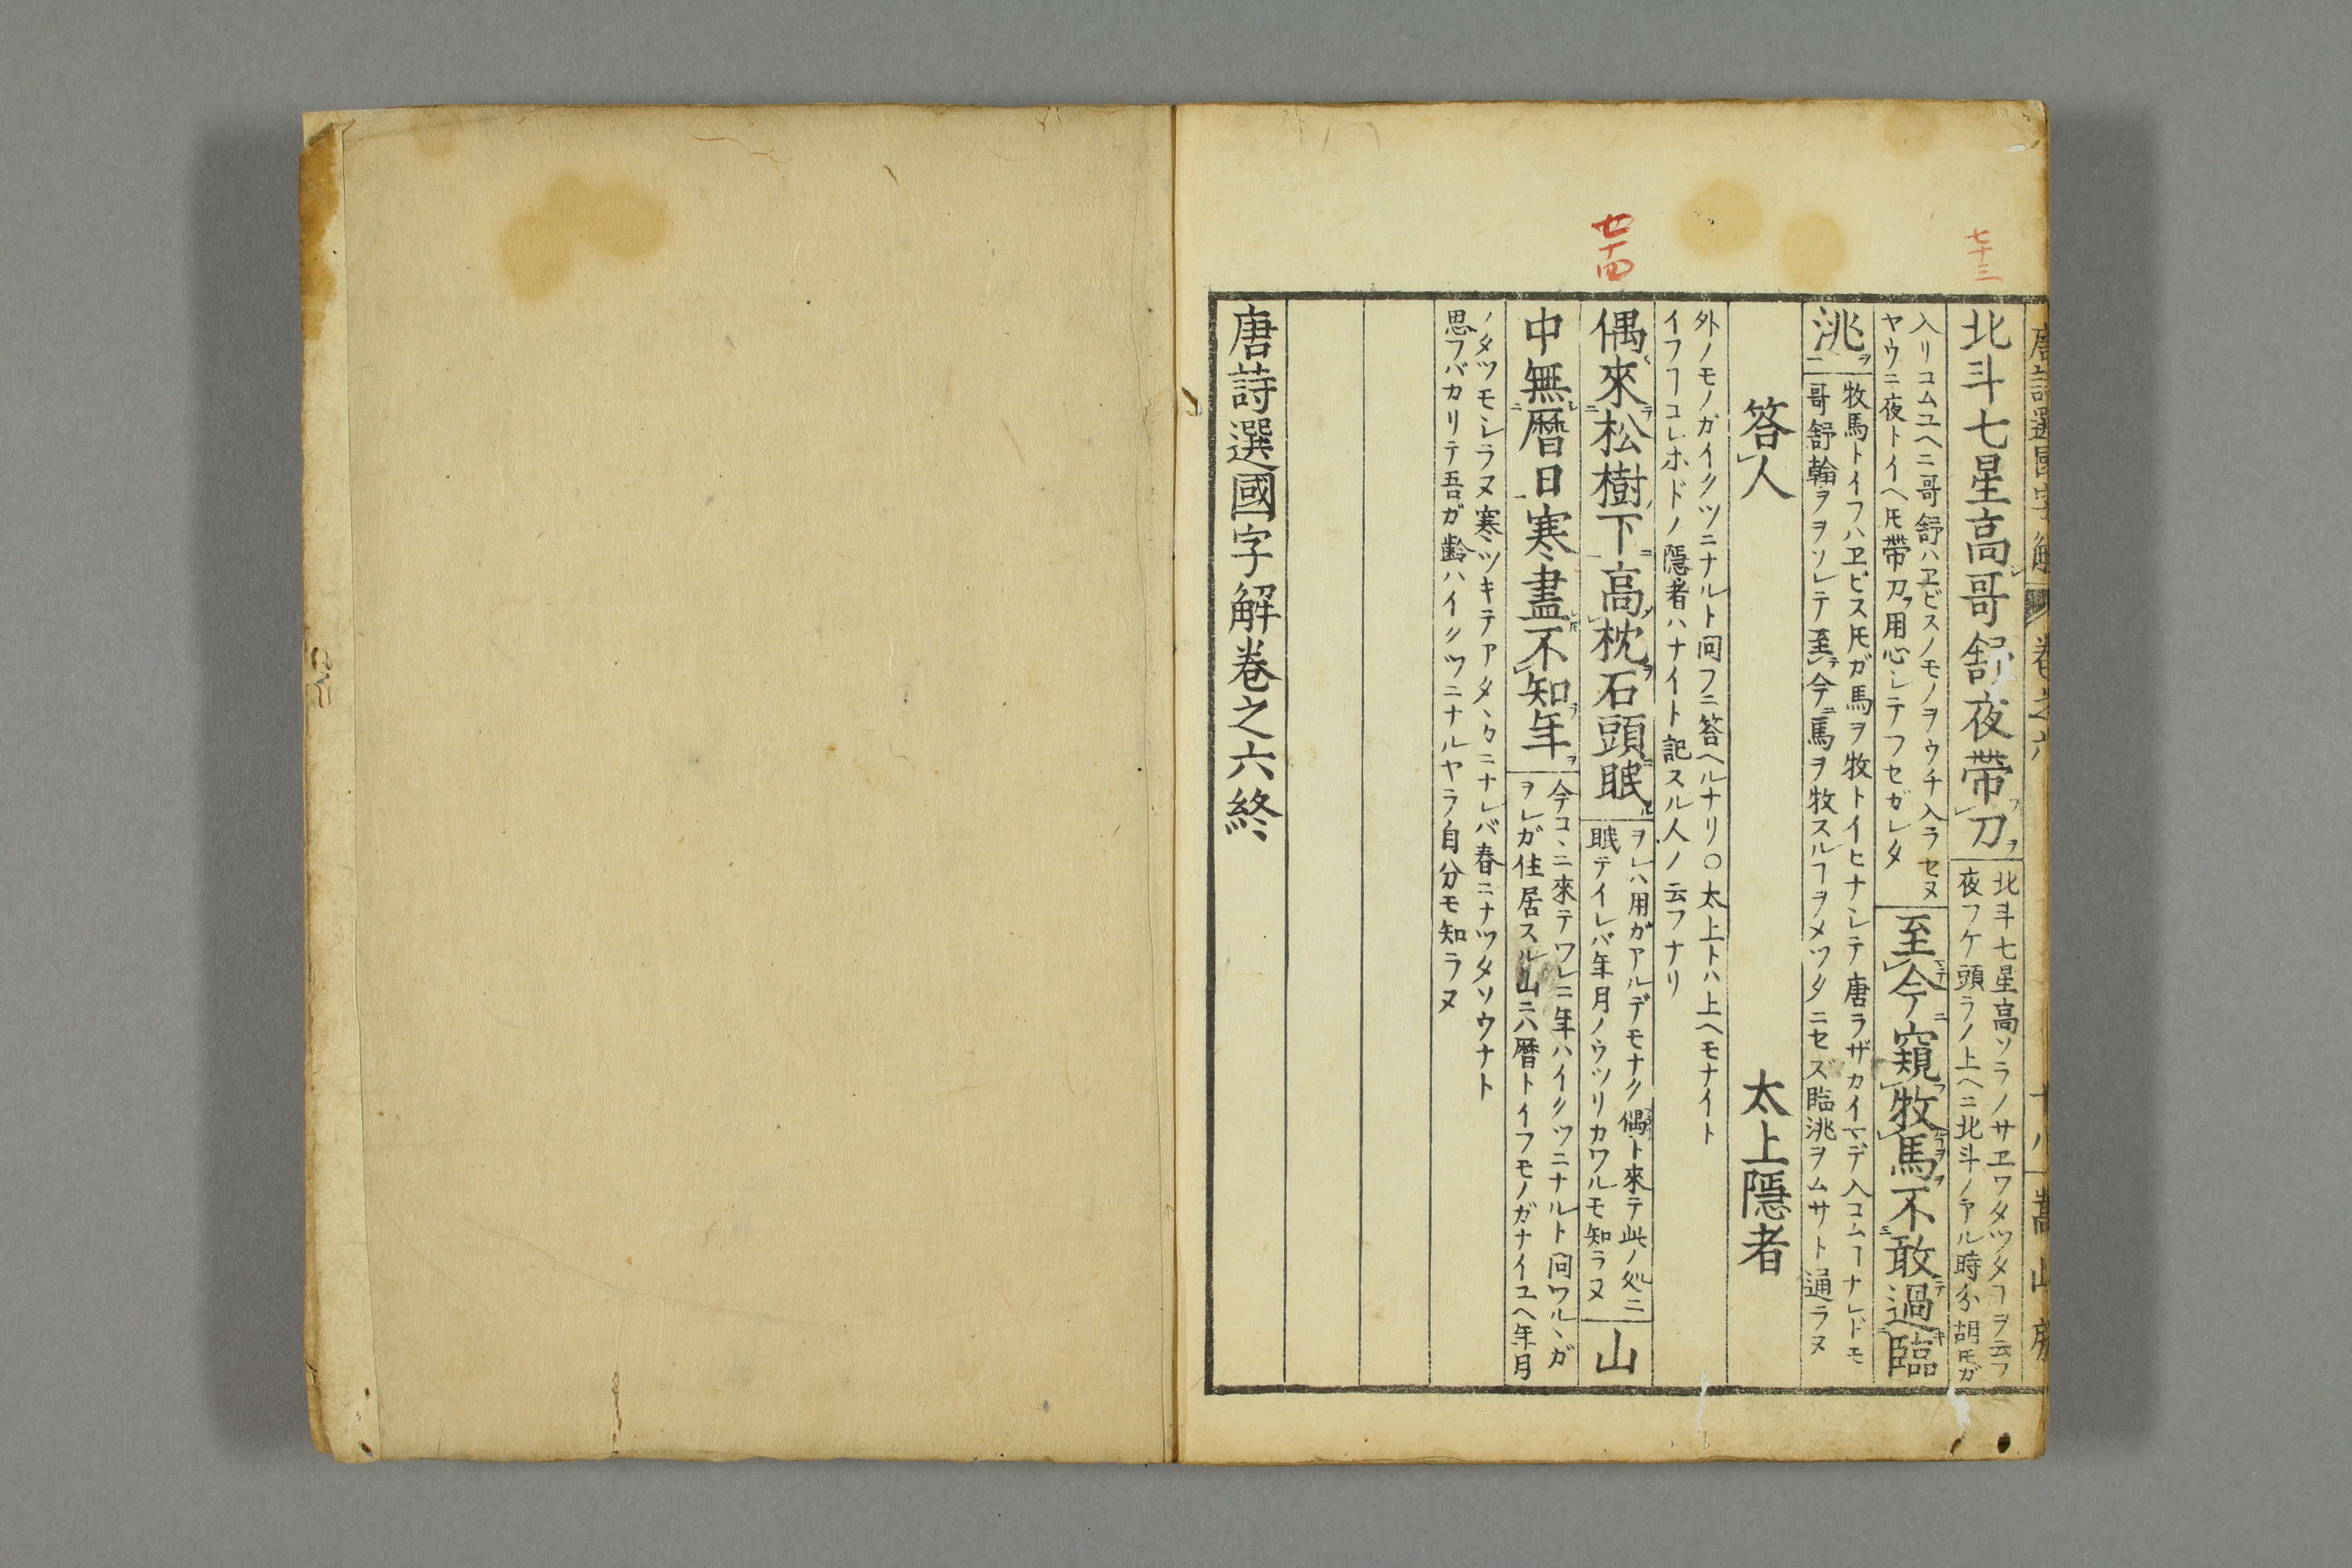 七十三
七十四
北斗七星高哥舒夜帶刀
北斗七星高ソラノサヱワタツタヿヲ云フ
夜フケ頭ラノ上ヘニ北斗ノアル時分胡𪜈ガ
入リコムユヘニ哥舒ハヱビスノモノヲウチ入ラセヌ
ヤウニ夜トイヘ𪜈帶刀用心シテフセガレタ
至今窺牧馬不敢過臨
洮
牧馬トイフハヱビス𪜈ガ馬ヲ牧トイヒナシテ唐ラザカイマデ入コムヿナレドモ
哥舒翰ヲヲソレテ至今馬ヲ牧スルヿヲメツタニセズ臨洮ヲムサト通ラヌ
答人 太上隱者
外ノモノガイクツニナルト問フニ答ヘルナリ○太上トハ上ヘモナイト
イフヿコレホドノ隱者ハナイト記スル人ノ云フナリ
偶來松樹下高枕石頭眠
ヲレハ用ガアルデモナク偶ト來テ此ノ処ニ
眠テイレバ年月ノウツリカワルモ知ラヌ
山
中無曆日寒盡不知年
今コヽニ來テワレニ年ハイクツニナルト問ワルヽガ
ヲレガ住居スル山ニハ曆トイフモノガナイユヘ年月
ノタツモシラヌ寒ツキテアタヽカニナレバ春ニナツタソウナト
思フバカリテ吾ガ齢ハイクツニナルヤラ自分モ知ラヌ
唐詩選國字解卷之六終